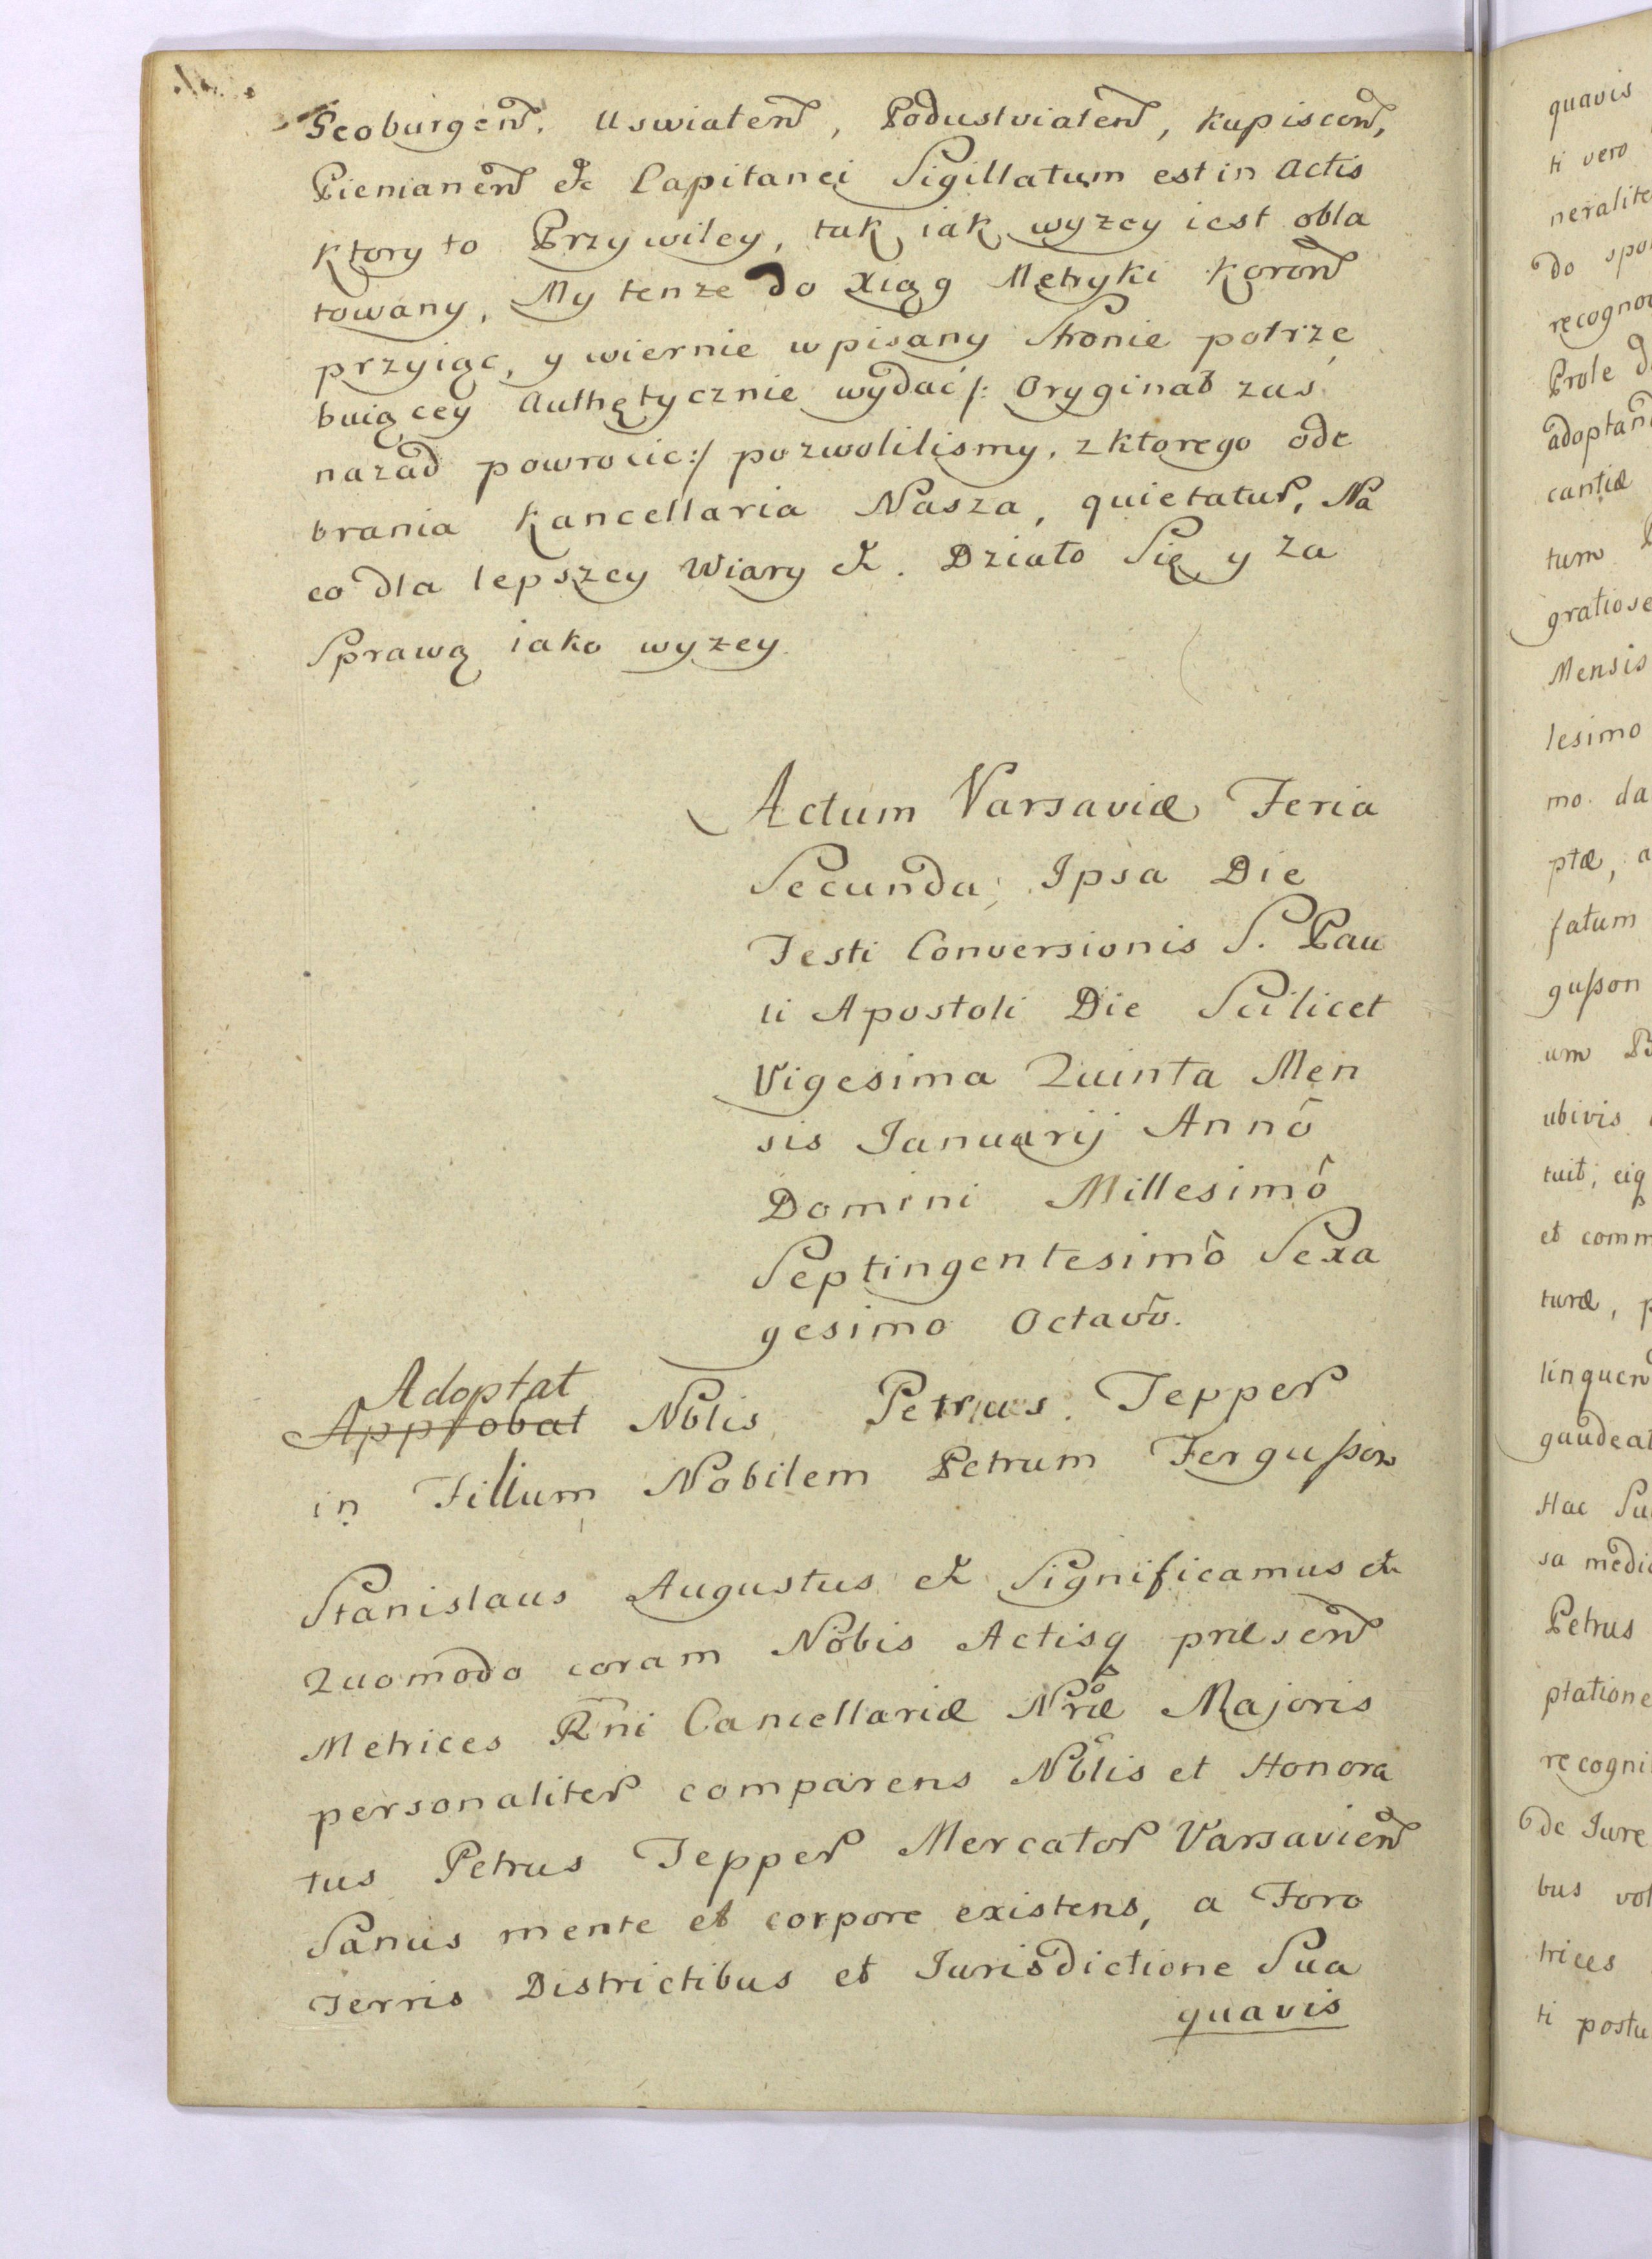 Seoburgen, Uswiaten, Podustviaten, Kupiscen,
Pienianen &c Capitanei Sigillatum est in Actis
Ktory to Przywiley, tak iak wyzey iest obla
towany, My tenze do Xiąg Metryki Koron
przyiąc, y wiernie wpisany Stronie potrze
buiącey Authętycznie wydać /: Oryginał zas
nazad powrocic :/ pozwolilismy, z ktorego ode
brania Kancellaria Nasza, quietatur, Na
co dla lepszey Wiary &. Działo Się y za
Sprawą iako wyzey.
Actum Varsaviæ Feria
Secunda, Ipsa Die
Festi Conversionis S. Pau
li Apostoli Die Scilicet
Vigesima Quinta Men
sis Januarij Annô
Domini Millesimô
Septingentesimô Sexa
gesimo Octavô.
Adoptat
Approbat Nblis Petrus Tepper
in Filium Nobilem Petrum Fergusson
Stanislaus Augustus & Significamus &
Quomodo coram Nobis Actisq præsen
Metrices Rni Cancellariæ Nræ Majoris
personaliter comparens Nblis et Honora
tus Petrus Tepper Mercator Varsavien
Sanus mente et corpore existens, a Foro
Terris Districtibus et Jurisdictione Sua
quavis
quavis
ti vero
neralite
do spo
recogno
Prole d
adoptan
cantiæ
tum
gratiose
Mensis
lesimo
mo da
ptæ, a
fatum
gusson
um
ubivis
tuit, eiq
et comm
turæ, p
linquen
gaudeat
Hac Su
sa medi
Petrus
ptatione
recogni
de Jure
bus vol
trices
ti postu